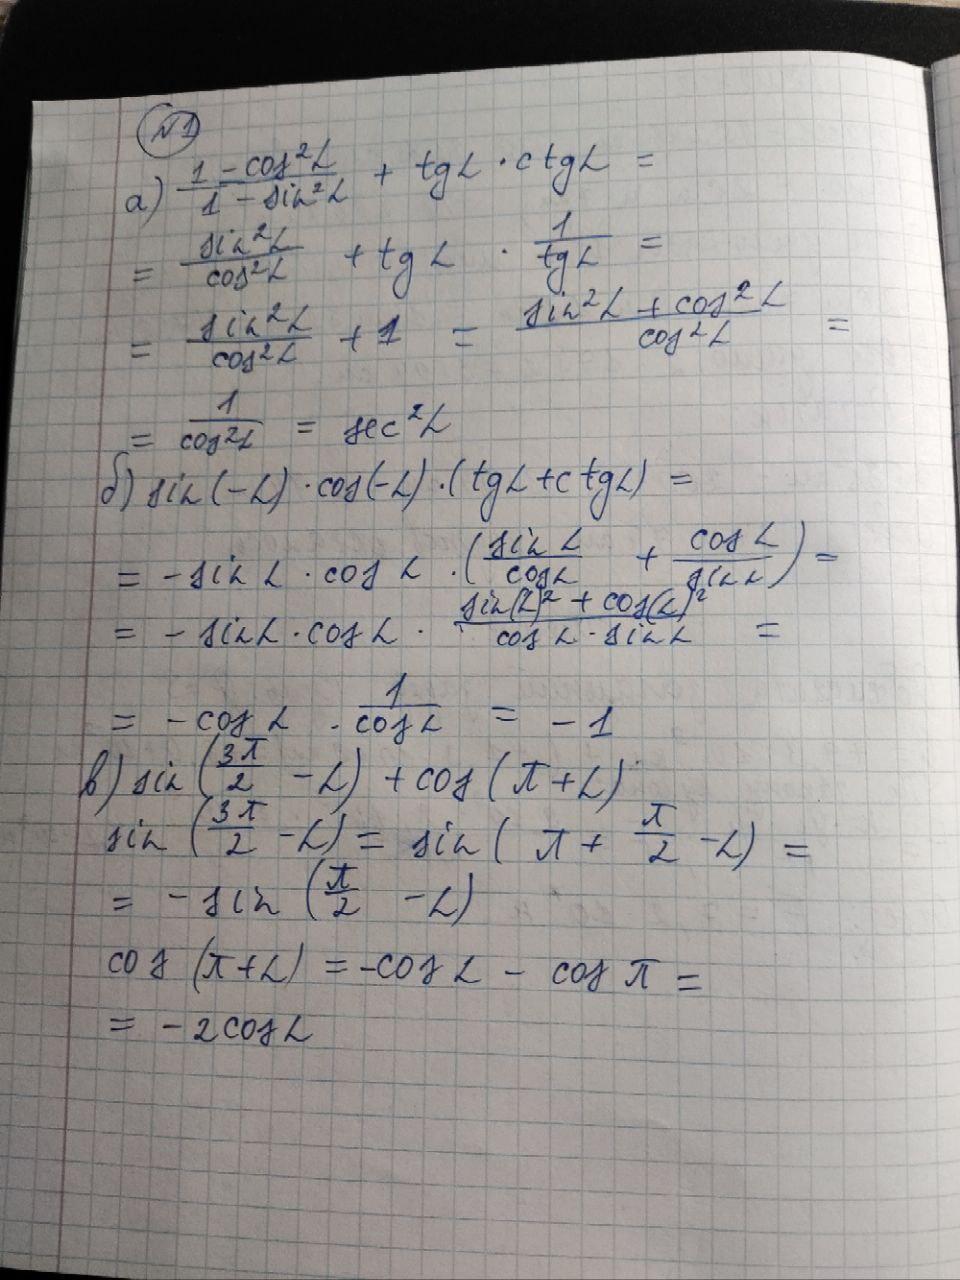 №1
а) (1 - cos²α)/(1 - sin²α) + tgα · ctgα =
= sin²α/cos²α + tgα · 1/tgα =
= sin²α/cos²α + 1 = (sin²α + cos²α)/cos²α =
= 1/cos²α = sec²α
б) sin(-α) · cos(-α) · (tgα + ctgα) =
= - sinα · cosα · (sinα/cosα + cosα/sinα) =
= - sinα · cosα · (sin(α)² + cos(α)²)/(cosα · sinα) =
= - cosα · 1/cosα = - 1
в) sin(3π/2 - α) + cos(π + α)
sin(3π/2 - α) = sin(π + π/2 - α) =
= - sin(π/2 - α)
cos(π + α) = -cosα - cosπ =
= - 2cosα